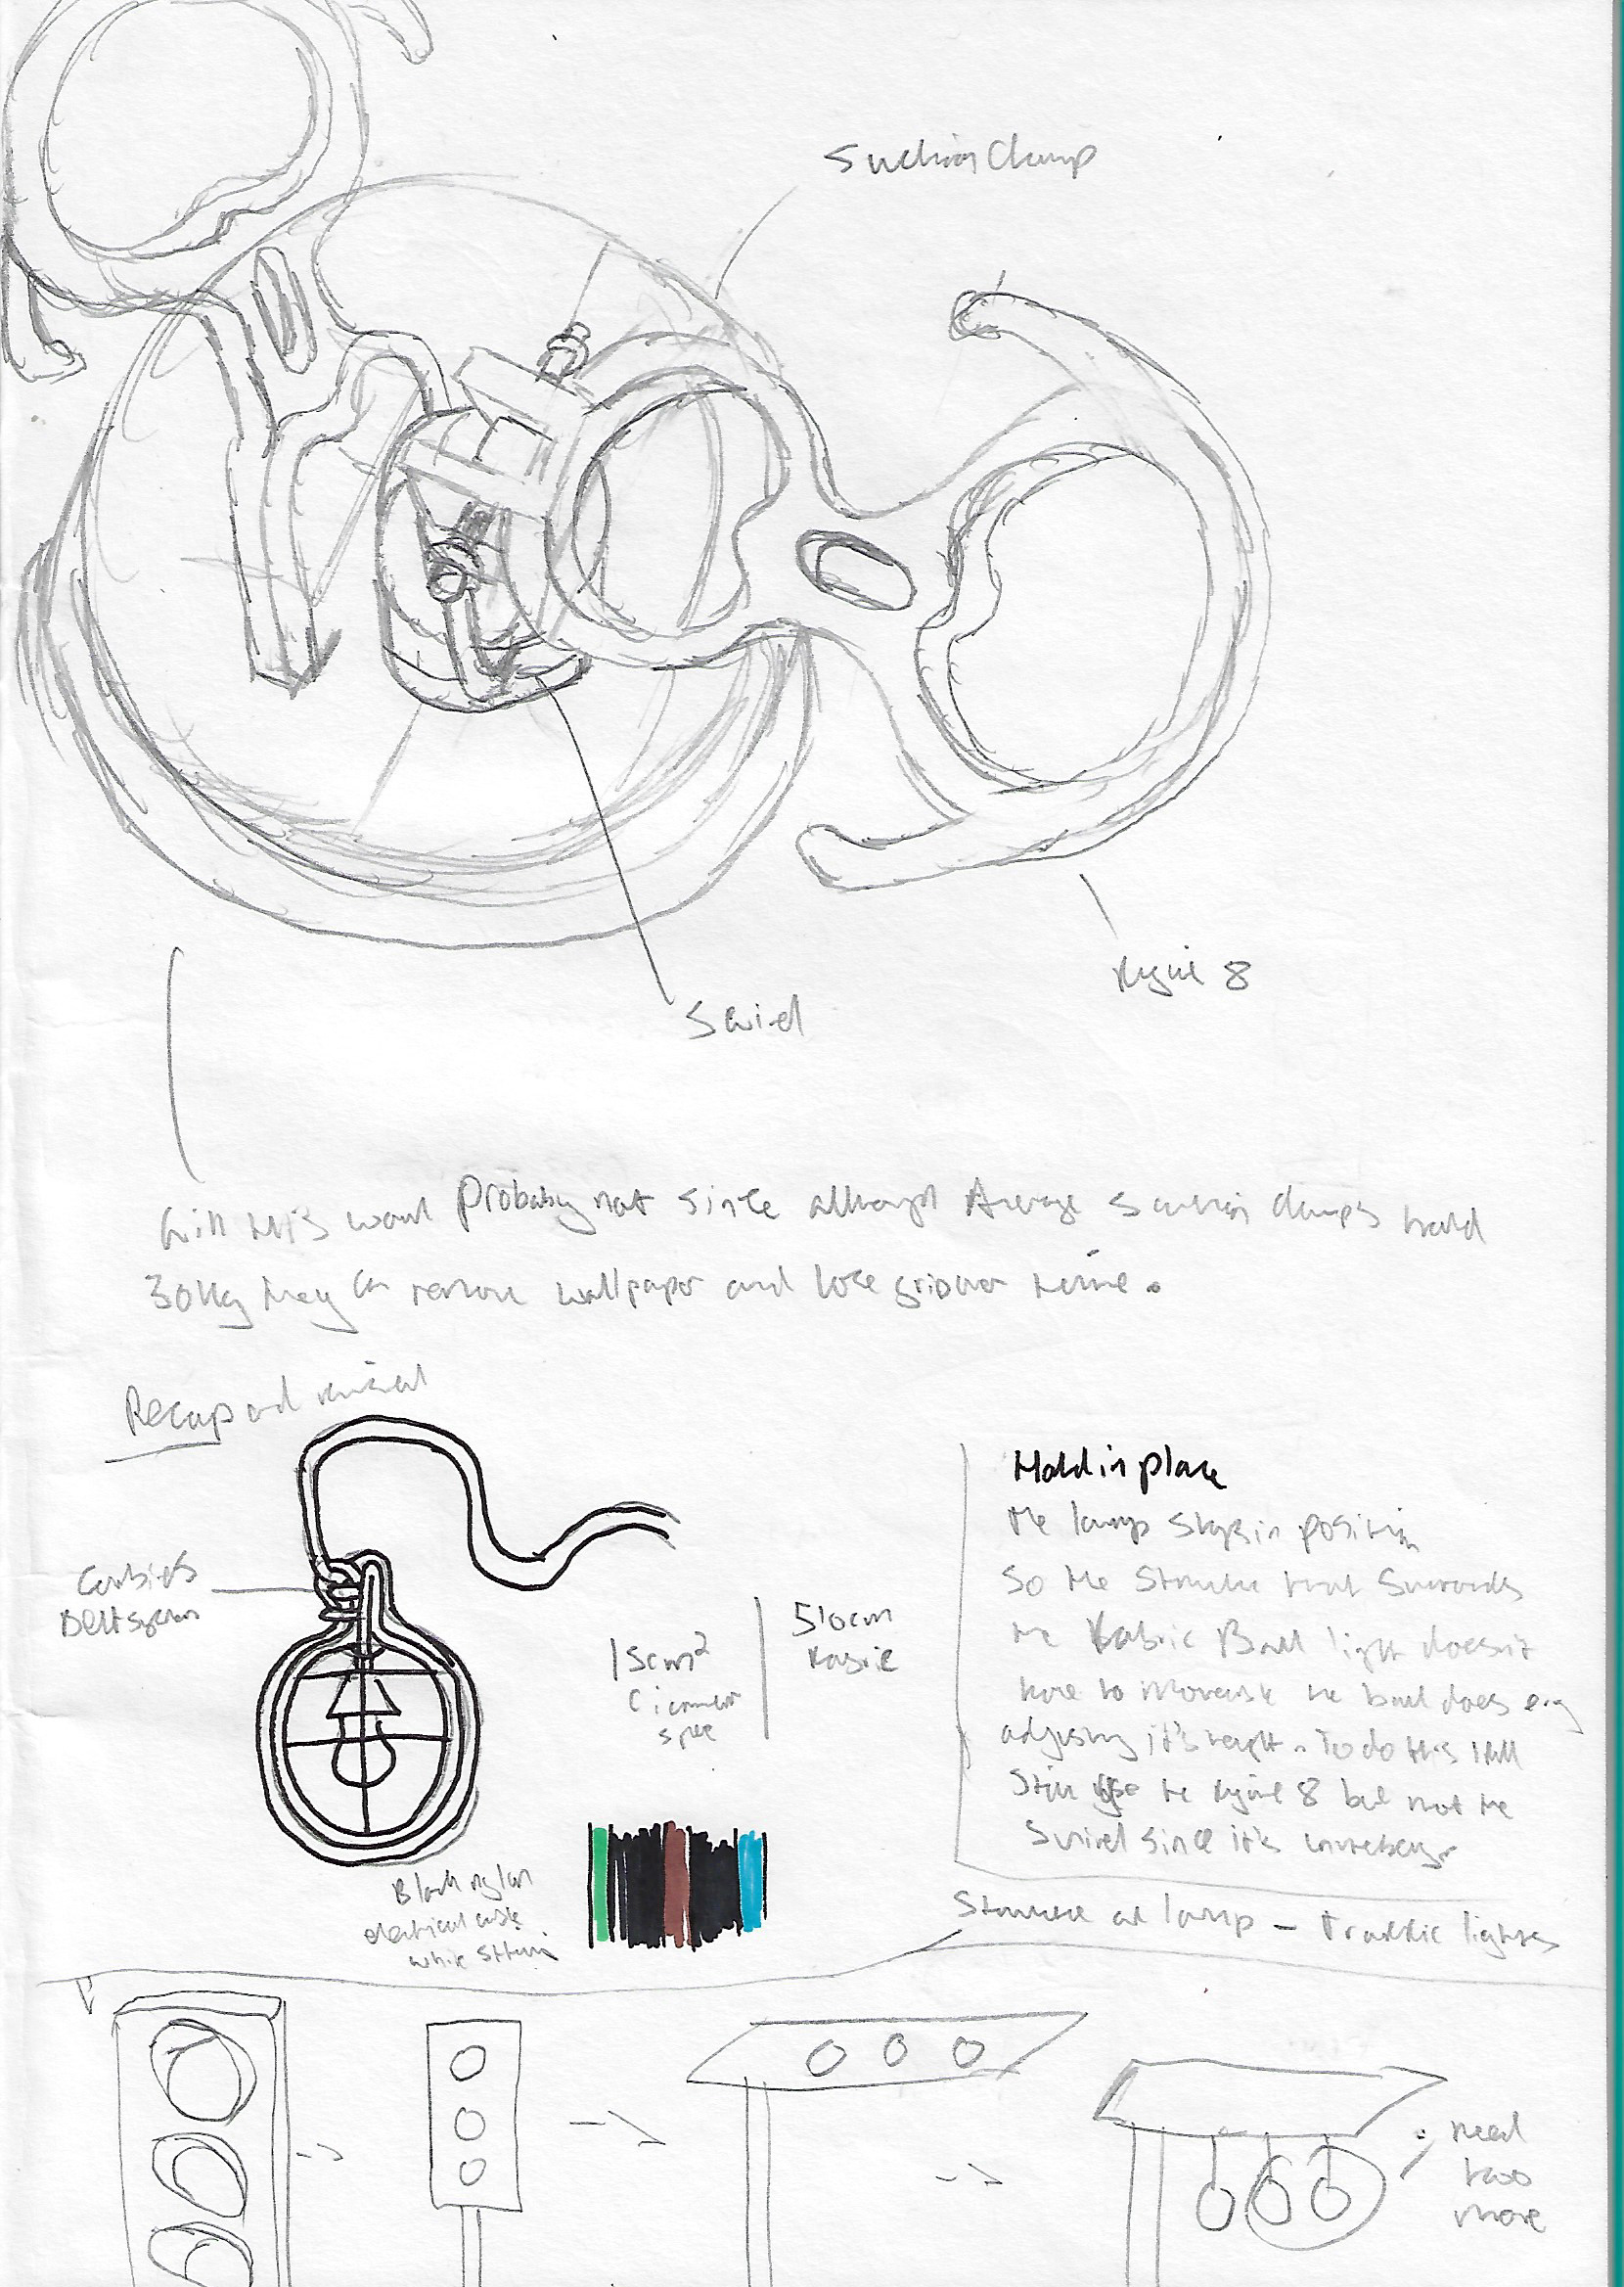 Suction Clamp
figure 8
Swivel
Will this work Probably not since although Average suction clamps hold
30kg they can remove wallpaper and lose grip over time.
Recap and
Hold in place
the lamp stays in position
So the Structure that Surrounds
the fabric Ball light doesn't
have to move the ball does e.g
adjusting it's height. To do this I will
Still use the figure 8 but not the
Swivel since it's
Belt system
15cm²
510cm
fabric
Black nylon
electrical cable
white
Structure of lamp - Traffic lights
need
two
more